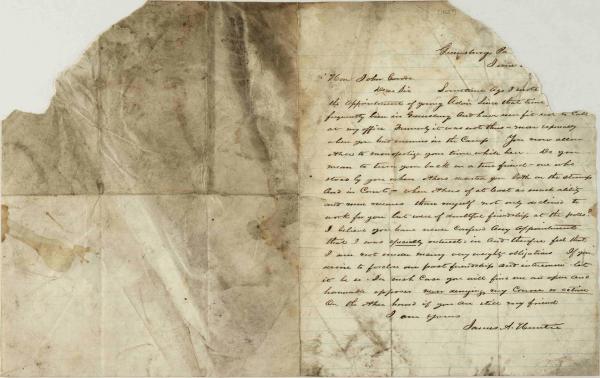 Greensburg Pa
June
Hon John Covode
Dear Sir Sometime ago I wrote
the appointment of young Since that time
frequently been in Greensburg And have not to Call
at my office Formerly it was not thus - more especially
when you had enemies in the Camp. You now allow
others to monopolize your time while here - Do you
mean to turn your back on a true friend - one who
stood by you when others you both on the stump
And in Court - when others of at least as much ability
and more means than myself not only declined to
work for you but were of doubtful friendship at the polls?
I believe you have never Confered Any Appointment
that I was specially interested in And therefore feel that
I am not under many very weighty obligations If you
desire to our past friendship And intercourse let
it be so - In such Case you will find me an open and
honorable opposer never denying my Course or action
On the other hand if you are still my friend
I am yours
James A. Hunter